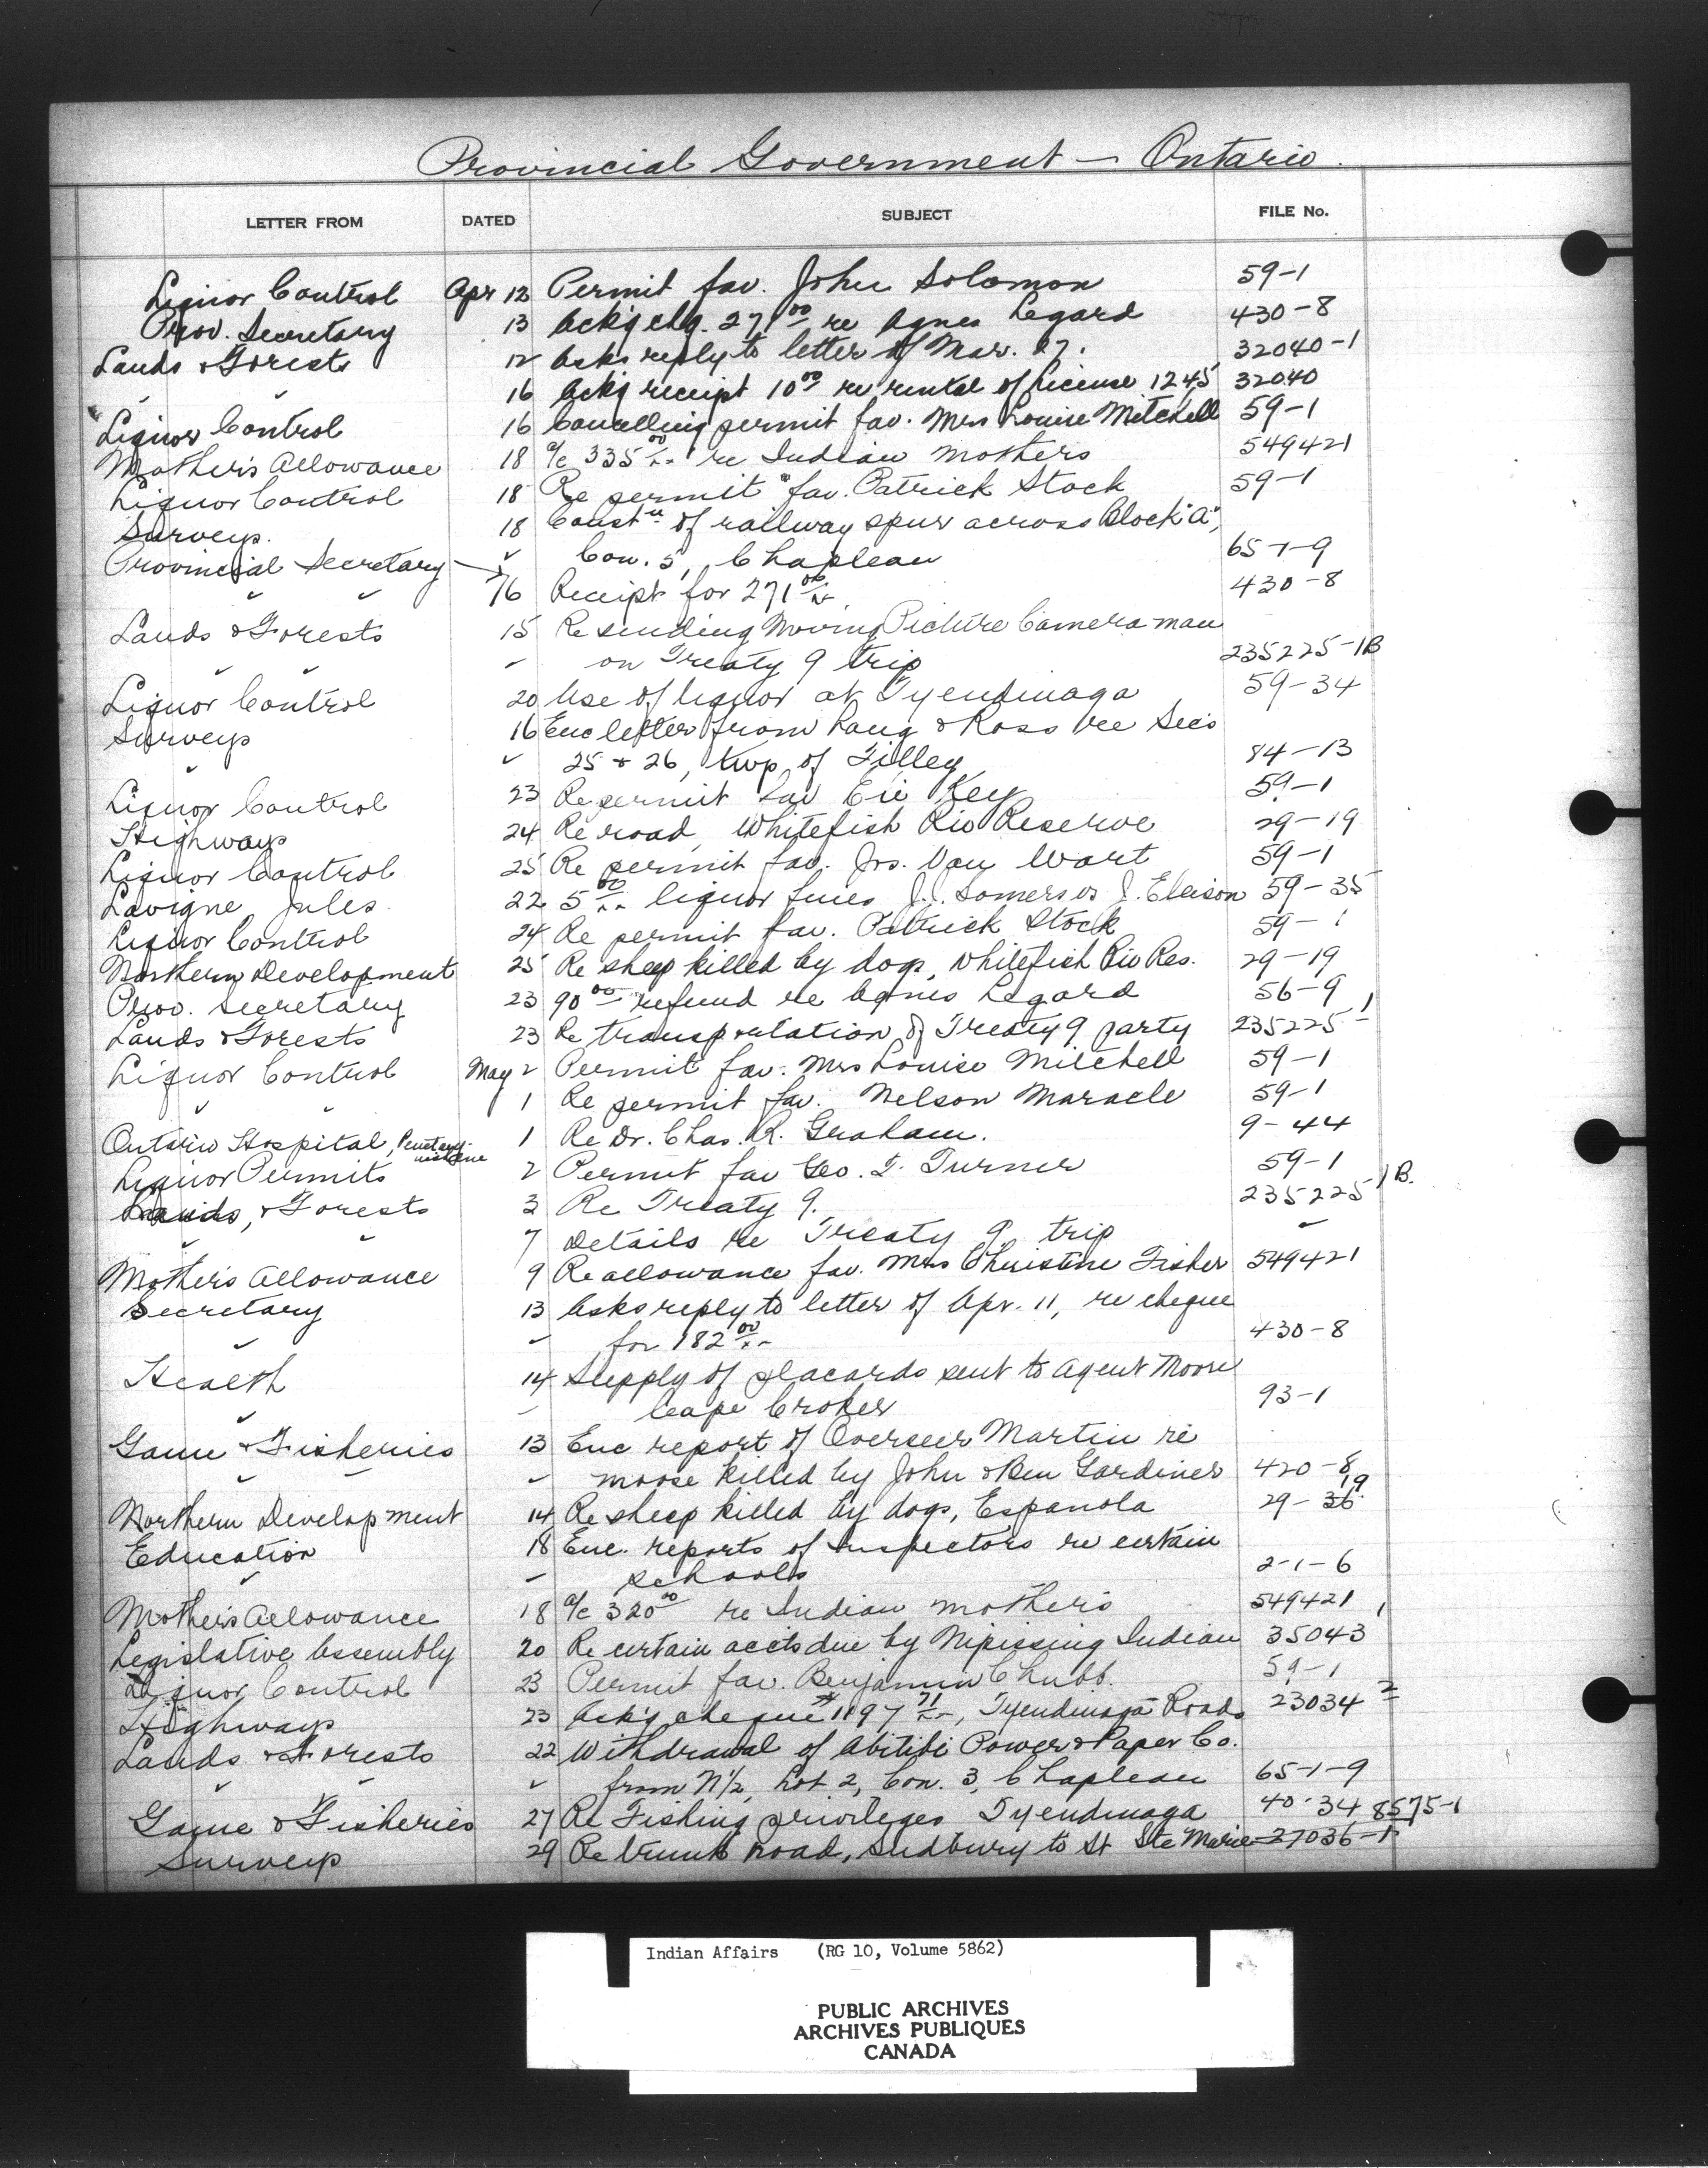 Provincial Government — Ontario.
LETTER FROM DATED SUBJECT FILE No.
Liquor Control Apr 12 Permit fav. John Solomon 59-1
Prov. Secretary 13 Ack'g chq. 271 00 re Agnes Legard 430-8
Lands & Forests 12 Asks reply to letter of Mar. 27. 32040-1
" " 16 Ack'g receipt 10 00 re rental of License 1245 32040
Liquor Control 16 Cancelling permit fav. Mrs Louise Mitchell 59-1
Mother's Allowance 18 a/c 335 00 re Indian mothers 549421
Liquor Control 18 Re permit fav. Patrick Stock 59-1
Surveys. 18 Constn of railway spur across Block "A",
" Con. 5, Chapleau 65-1-9
Provincial Secretary 16 Receipt for 271 00 430-8
Lands & Forests 15 Re sending Moving Picture Camera man
" " " on Treaty 9 trip 235225-1B
Liquor Control 20 Use of liquor at Tyendinaga 59-34
Surveys 16 Enc letter from Lang & Ross re Sec's
" " 25 & 26, twp. of Tilley 84-13
Liquor Control 23 Re permit fav Eli Key 59-1
Highways 24 Re road, Whitefish Riv Reserve 29-19
Liquor Control 25 Re permit fav. Jos. Van Wart 59-1
Lavigne Jules 22 5 00 liquor fines J. Somers vs J. Elleison 59-35
Liquor Control 24 Re permit fav. Patrick Stock 59-1
Northern Development 25 Re sheep killed by dogs, Whitefish Riv Res. 29-19
Prov. Secretary 23 90 00 refund re Agnes Legard 56-9
Lands & Forests 23 Re transportation of Treaty 9 party 235225-1
Liquor Control May 2 Permit fav. Mrs Louise Mitchell 59-1
" " 1 Re permit fav. Nelson Maracle 59-1
Ontario Hospital, Penetanguishene 1 Re Dr. Chas. R. Graham. 9-44
Liquor Permits 2 Permit fav Geo. T. Turner 59-1
Lands, & Forests 3 Re Treaty 9. 235225-1B.
" " 7 Details re Treaty 9 trip "
Mother's Allowance 9 Re allowance fav. Mrs Christine Fisher 549421
Secretary 13 Asks reply to letter of Apr. 11, re cheque
" " for 182 00 430-8
Health 14 Supply of placards sent to Agent Moore
" " Cape Croker 93-1
Game & Fisheries 13 Enc report of Overseer Martin re
" " " moose killed by John & Ben Gardiner 420-8
Northern Development 14 Re sheep killed by dogs, Espanola 29-36 19
Education 18 Enc. reports of Inspectors re certain
" " schools 2-1-6
Mother's Allowance 18 a/c 320 00 re Indian mothers 549421
Legislative Assembly 20 Re certain accts due by Nipissing Indian 35043
Liquor Control 23 Permit fav. Benjamin Chubb. 59-1
Highways 23 Ack'g cheque #1897 71, Tyendinaga Roads 23034-2
Lands & Forests 22 Withdrawal of Abitibi Power & Paper Co.
" " " from N1/2, Lot 2, Con. 3, Chapleau 65-1-9
Game & Fisheries 27 Re Fishing privileges Tyendinaga 40-34 8575-1
Surveys 29 Re trunk road, Sudbury to St Ste Marie 27036-1
Indian Affairs (RG 10, Volume 5862)
PUBLIC ARCHIVES
ARCHIVES PUBLIQUES
CANADA